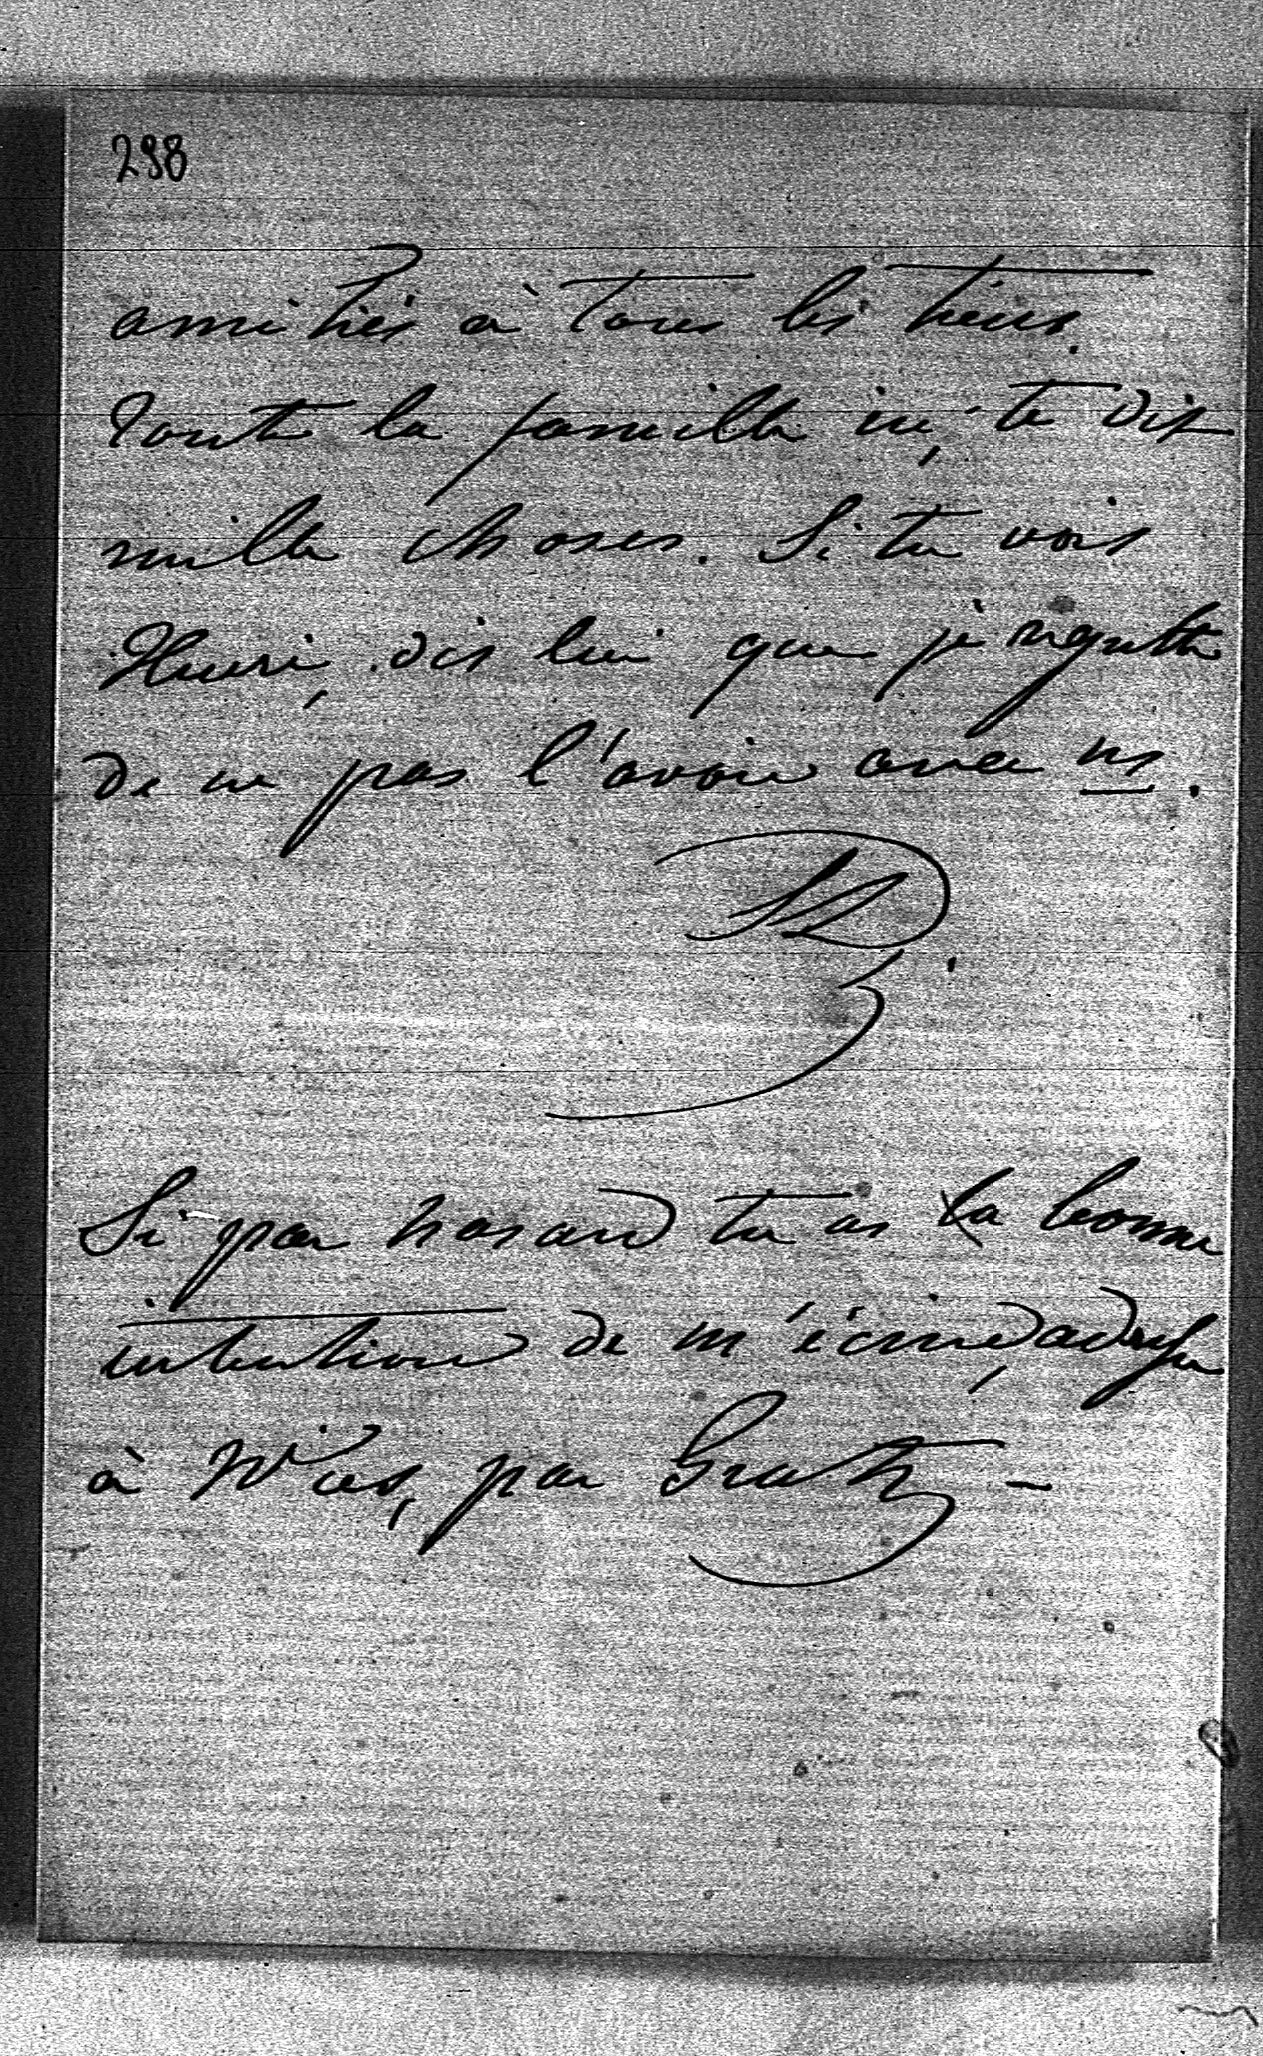 298
amitiés à tous les tiens.
Toute la famille ici, te dit
mille choses. Si tu vois
Henri, dis lui que je regrette
de ne pas l'avoir avec ns.
Si par hasard tu as la bonne
intention de m'écrire, adresse
à Wies, par Gratz –